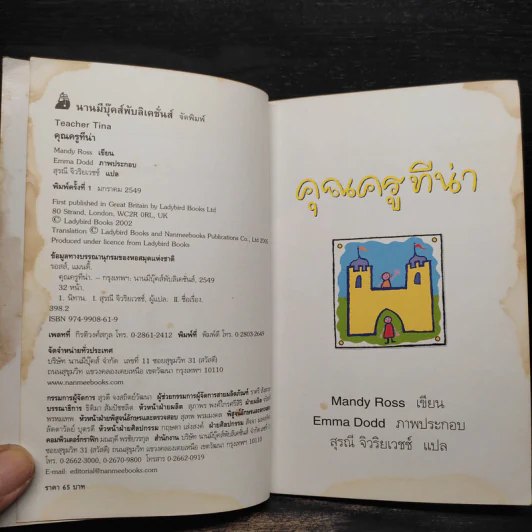 นานมีบุ๊คส์พับลิเคชั่นส์ จัดพิมพ์
Teacher Tina
คุณครูทีน่า
Mandy Ross เขียน
Emma Dodd ภาพประกอบ
สุรณี จิวริยเวชช์ แปล
พิมพ์ครั้งที่ 1 มกราคม 2549
First published in Great Britain by Ladybird Books Ltd
80 Strand, London, WC2R 0RL, UK
© Ladybird Books 2002
Translation © Ladybird Books and Nanmeebooks Publications Co., Ltd
Produced under licence from Ladybird Books
ข้อมูลทางบรรณานุกรมของหอสมุดแห่งชาติ
รอสส์, แมนดี้.
คุณครูทีน่า. -- กรุงเทพฯ. นานมีบุ๊คส์พับลิเคชั่นส์, 2549
32 หน้า.
1. นิทาน. I. สุรณี จิวริยเวชช์, ผู้แปล. II. ชื่อเรื่อง.
398.2
ISBN 974-9908-61-9
เพลทที่ โทร. 0-2861-2412 พิมพ์ที่ พิมพ์ดี โทร.
จัดจำหน่ายทั่วประเทศ
บริษัท นานมีบุ๊คส์ จำกัด เลขที่ 11 ซอยสุขุมวิท 31 (สวัสดี)
ถนนสุขุมวิท แขวงคลองเตยเหนือ เขตวัฒนา กรุงเทพฯ 10110
www.nanmeebooks.com
กรรมการผู้จัดการ สุวดี จงสถิตย์วัฒนา ผู้ช่วยกรรมการผู้จัดการสายผลิตภัณฑ์
บรรณาธิการ หัวหน้าฝ่ายผลิต
หัวหน้าฝ่ายพิสูจน์อักษรและตรวจสอบ
หัวหน้าฝ่ายศิลปกรรม ฝ่ายศิลปกรรม
คอมพิวเตอร์กราฟิก สำนักงาน บริษัท นานมีบุ๊คส์
ซอยสุขุมวิท 31 (สวัสดี) ถนนสุขุมวิท แขวงคลองเตยเหนือ เขตวัฒนา กรุงเทพฯ 10110
โทร. 0-2662-3000, 0-2670-9800 โทรสาร 0-2662-0919
E-mail: editorial@nanmeebooks.com
ราคา 65 บาท
คุณครูทีน่า
Mandy Ross เขียน
Emma Dodd ภาพประกอบ
สุรณี จิวริยเวชช์ แปล